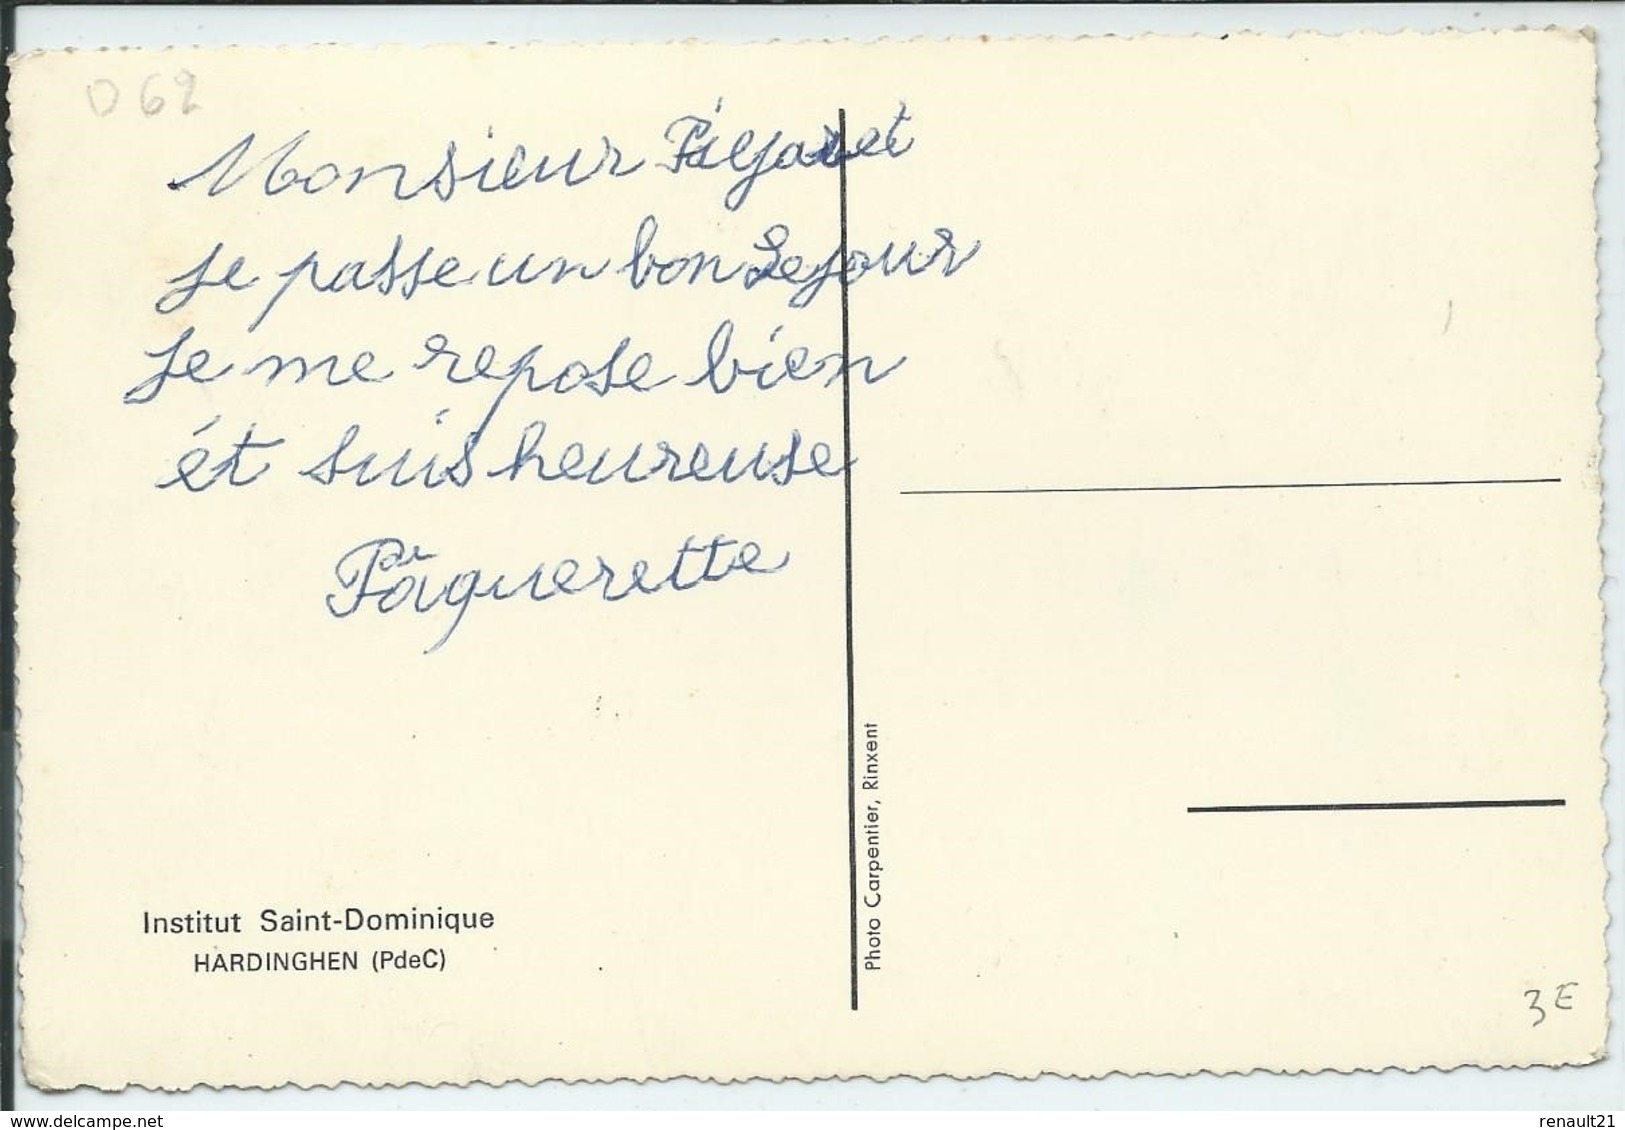 D 62
Monsieur
je passe un bon Sejour
je me repose bien
ét suis heureuse
Pâquerette
Institut Saint-Dominique
HARDINGHEN (PdeC)
Photo Carpentier, Rinxent
3E
renault21